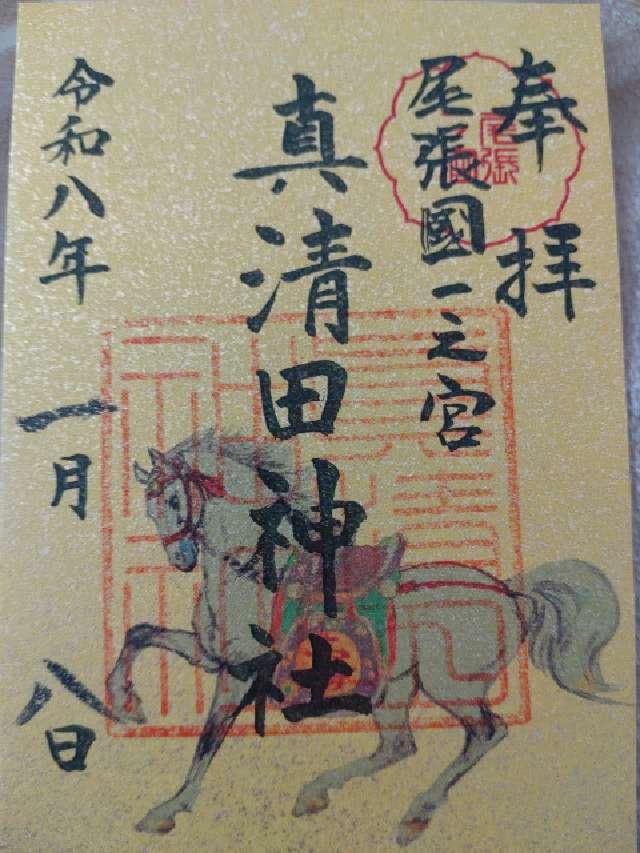 奉拝
尾張國一之宮
真清田神社
令和八年一月八日